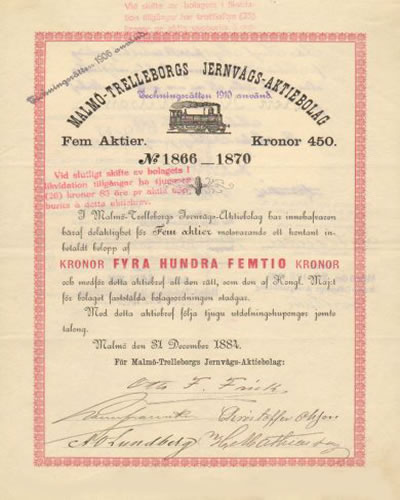 Vid skifte av bolagets i likvi-
dation tillgångar har
Teckningsrätten 1906 använd.
MALMÖ-TRELLEBORGS JERNVÄGS-AKTIEBOLAG
Teckningsrätten 1910 använd.
Fem Aktier. Kronor 450.
№ 1866—1870
Vid slutligt skifte av bolagets i
likvidation tillgångar ha tjugo
(26) kronor 85 öre pr aktie
burits å detta aktiebrev.
I Malmö-Trelleborgs Jernvägs-Aktiebolag har innehafvaren
häraf delaktighet för Fem aktier motsvarande ett kontant in-
betaldt belopp af
KRONOR FYRA HUNDRA FEMTIO KRONOR
och medför detta aktiebref all den rätt, som den af Kongl. Maj:t
för bolaget fastställda bolagsordningen stadgar.
Med detta aktiebref följa tjugu utdelningskuponger jemte
talong.
Malmö den 31 December 1884.
För Malmö-Trelleborgs Jernvägs-Aktiebolag:
Otto F. Frick
Christoffer Olsson
N O Lundberg